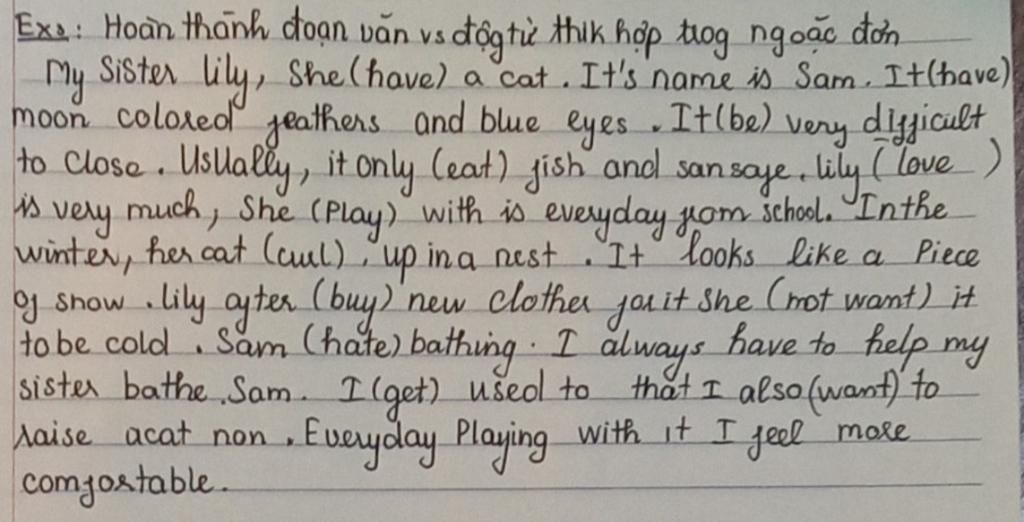 Ex2: Hoàn thành đoạn văn vs động từ thik hợp trog ngoặc đơn
My Sister lily, She (have) a cat. It's name is Sam. It (have)
moon colored feathers and blue eyes. It (be) very difficult
to close. Usually, it only (eat) fish and sansaye. lily (love )
is very much, She (Play) with is everyday from school. In the
winter, her cat (curl), up in a nest. It looks like a Piece
of snow. lily after (buy) new clother for it She (not want) it
to be cold. Sam (hate) bathing. I always have to help my
sister bathe Sam. I (get) used to that I also (want) to
raise a cat non. Everyday Playing with it I feel more
comfortable.